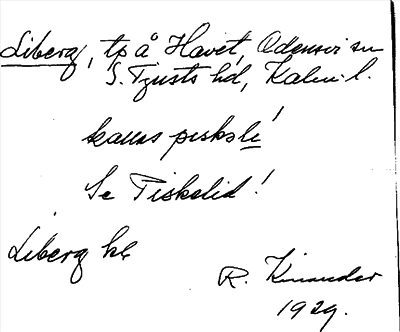 Liberg, tp å Havet, Odensvi sn
S. Tjusts hd, Kalm. l.
kallas peskəli ́
Se Piskelid!
Liberg ke
R. Kinander
1929.